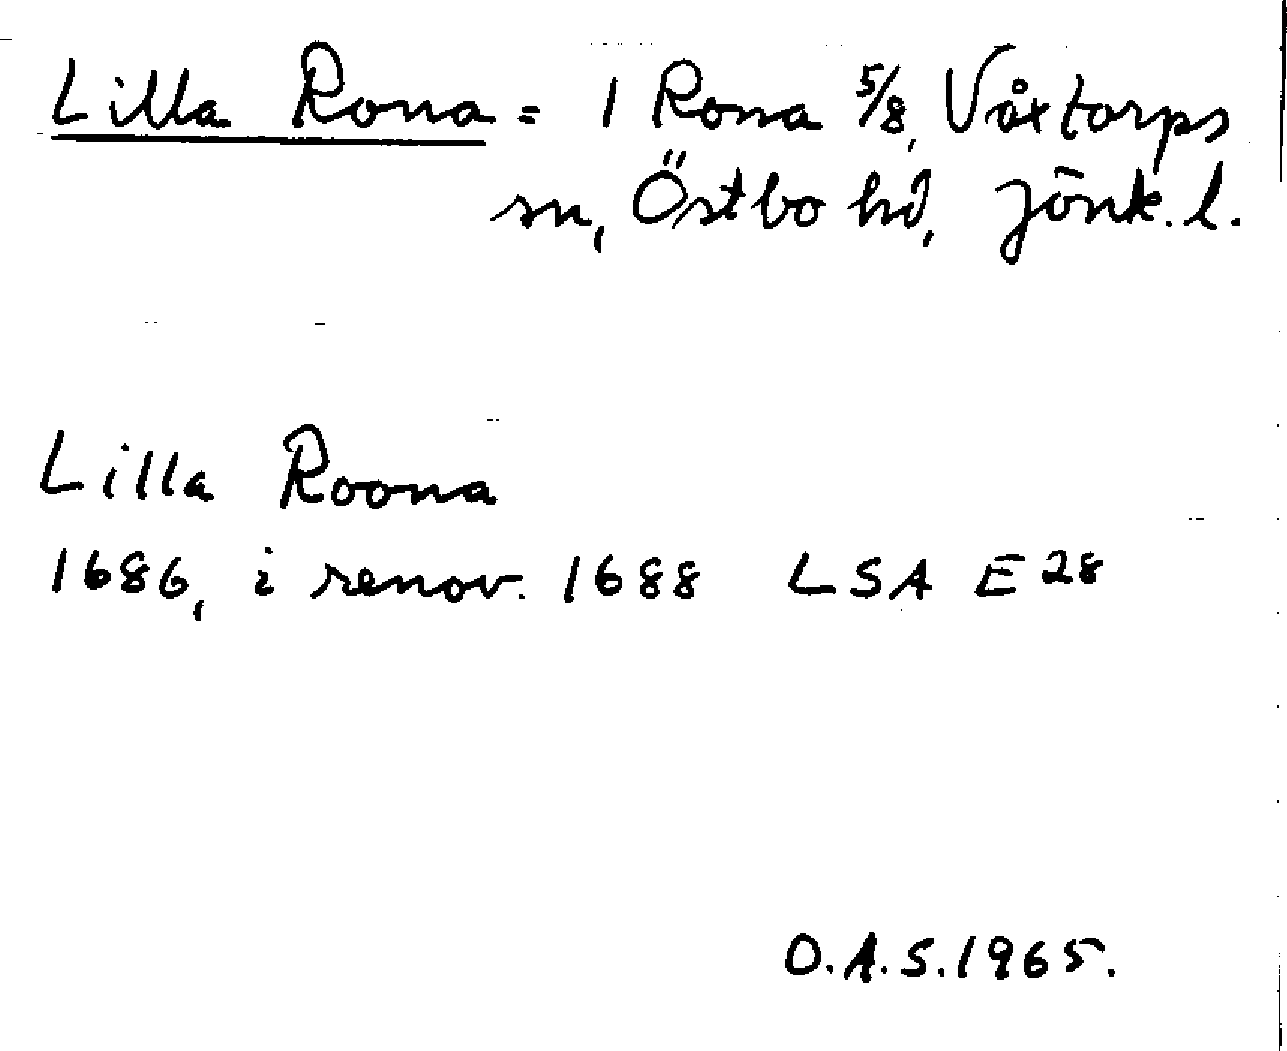 Lilla Rona = 1 Rona 5/8, Våxtorps
sn, Östbo hd, Jönk. l.
Lilla Roona
1686, i renov. 1688 LSA E 28
O.A.S. 1965.